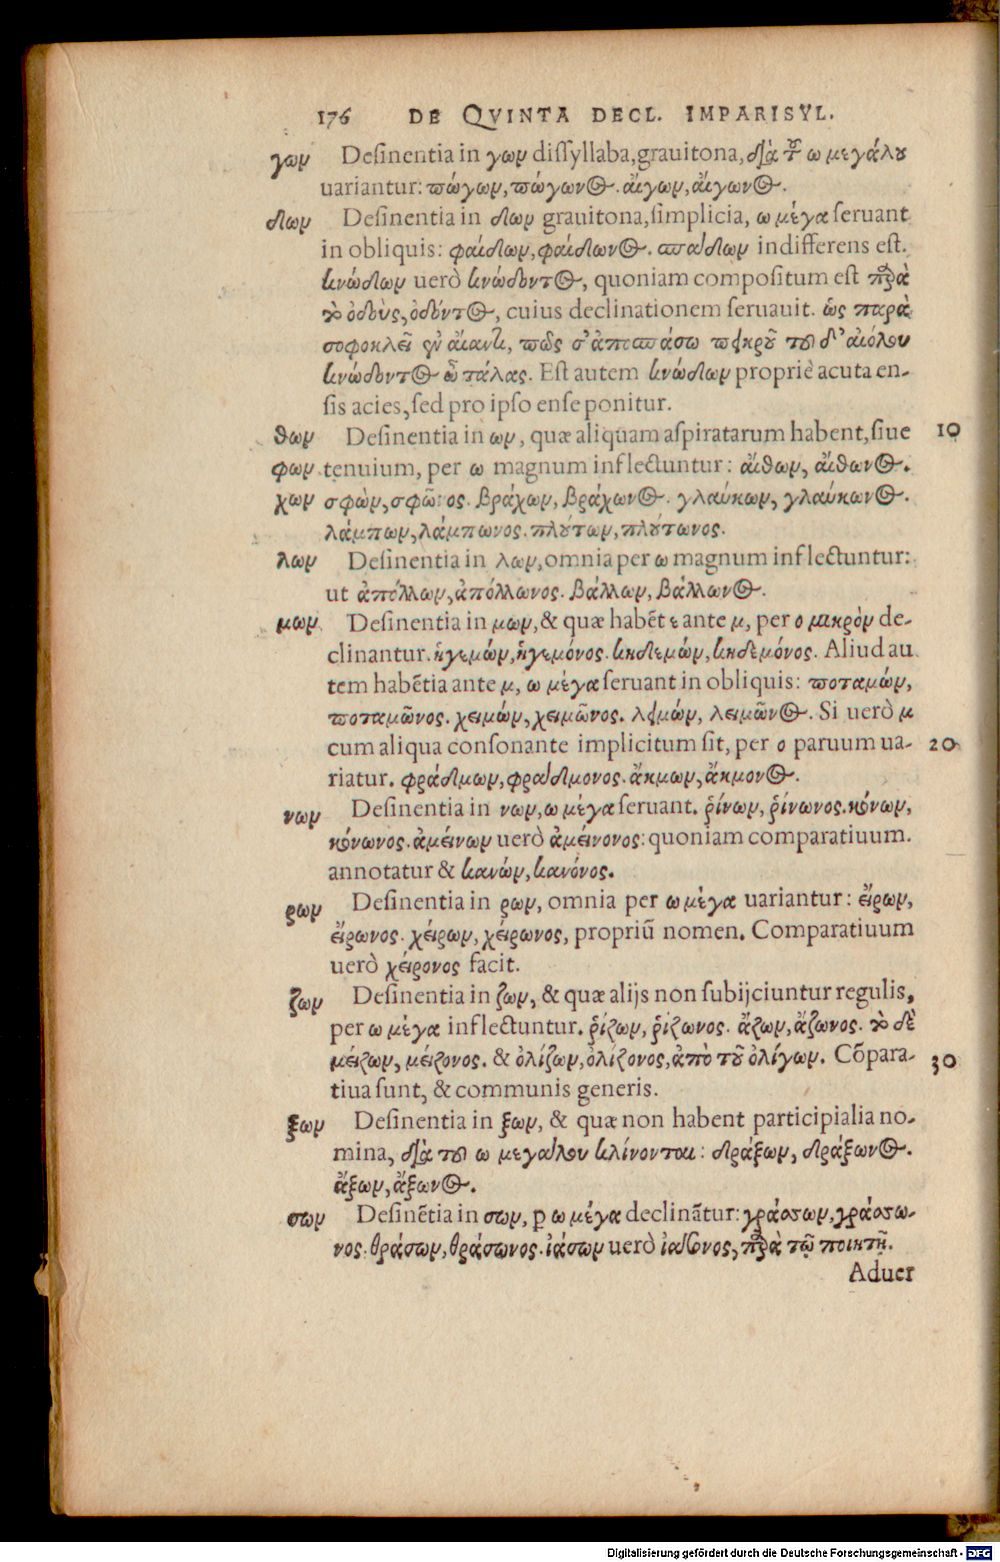 176 DE QVINTA DECL. IMPARISYL.
γων Desinentia in γων dissyllaba, grauitona, διὰ τοῦ ω μεγάλου
uariantur: πώγων, πώγωνος. αἴγων, αἴγωνος.
δων Desinentia in δων grauitona, simplicia, ω μέγα seruant
in obliquis: φαίδων, φαίδωνος. σπάδων indifferens est.
κνώδων uerò κνώδοντος, quoniam compositum est παρὰ
τὸ ὀδοὺς, ὀδόντος, cuius declinationem seruauit. ὡς παρὰ
σοφοκλεῖ ἐν αἴαντι, πῶς σ' ἀποσπάσω πικροῦ τοῦ δ' αἰόλου
κνώδοντος ὦ τάλας. Est autem κνώδων propriè acuta en-
sis acies, sed pro ipso ense ponitur.
θων Desinentia in ων, quæ aliquam aspiratarum habent, siue 10
φων tenuium, per ω magnum inflectuntur: αἴθων, αἴθωνος.
χων σφὼν, σφῶνος. βράχων, βράχωνος. γλαύκων, γλαύκωνος.
λάμπων, λάμπωνος. πλούτων, πλούτωνος.
λων Desinentia in λων, omnia per ω magnum inflectuntur:
ut ἀπόλλων, ἀπόλλωνος. βάλλων, βάλλωνος.
μων Desinentia in μων, & quæ habēt ε ante μ, per ο μικρὸν de-
clinantur. ἡγεμών, ἡγεμόνος. κηδεμών, κηδεμόνος. Aliud au
tem habētia ante μ, ω μέγα seruant in obliquis: ποταμών,
ποταμῶνος. χειμών, χειμῶνος. λειμών, λειμῶνος. Si uerò μ
cum aliqua consonante implicitum sit, per ο paruum ua- 20
riatur. φράδμων, φράδμονος. ἄκμων, ἄκμονος.
νων Desinentia in νων, ω μέγα seruant. ῥίνων, ῥίνωνος. κόνων,
κόνωνος. ἀμείνων uerò ἀμείνονος: quoniam comparatiuum.
annotatur & κανών, κανόνος.
ρων Desinentia in ρων, omnia per ω μέγα uariantur: εἴρων,
εἴρωνος. χείρων, χείρωνος, propriū nomen. Comparatiuum
uerò χείρονος facit.
ζων Desinentia in ζων, & quæ alijs non subijciuntur regulis,
per ω μέγα inflectuntur. ῥίζων, ῥίζωνος. ἄζων, ἄζωνος. τὸ δὲ
μείζων, μείζονος. & ὀλίζων, ὀλίζονος, ἀπὸ τοῦ ὀλίγων. Cōpara- 30
tiua sunt, & communis generis.
ξων Desinentia in ξων, & quæ non habent participialia no-
mina, διὰ τοῦ ω μεγάλου κλίνονται: δράξων, δράξωνος.
ἄξων, ἄξωνος.
σων Desinētia in σων, ꝑ ω μέγα declinātur: γράσων, γράσω-
νος. θράσων, θράσωνος. ἰάσων uerò ἰάσονος, παρὰ τῷ ποιητῇ.
Aduer
Digitalisierung gefördert durch die Deutsche Forschungsgemeinschaft - DFG